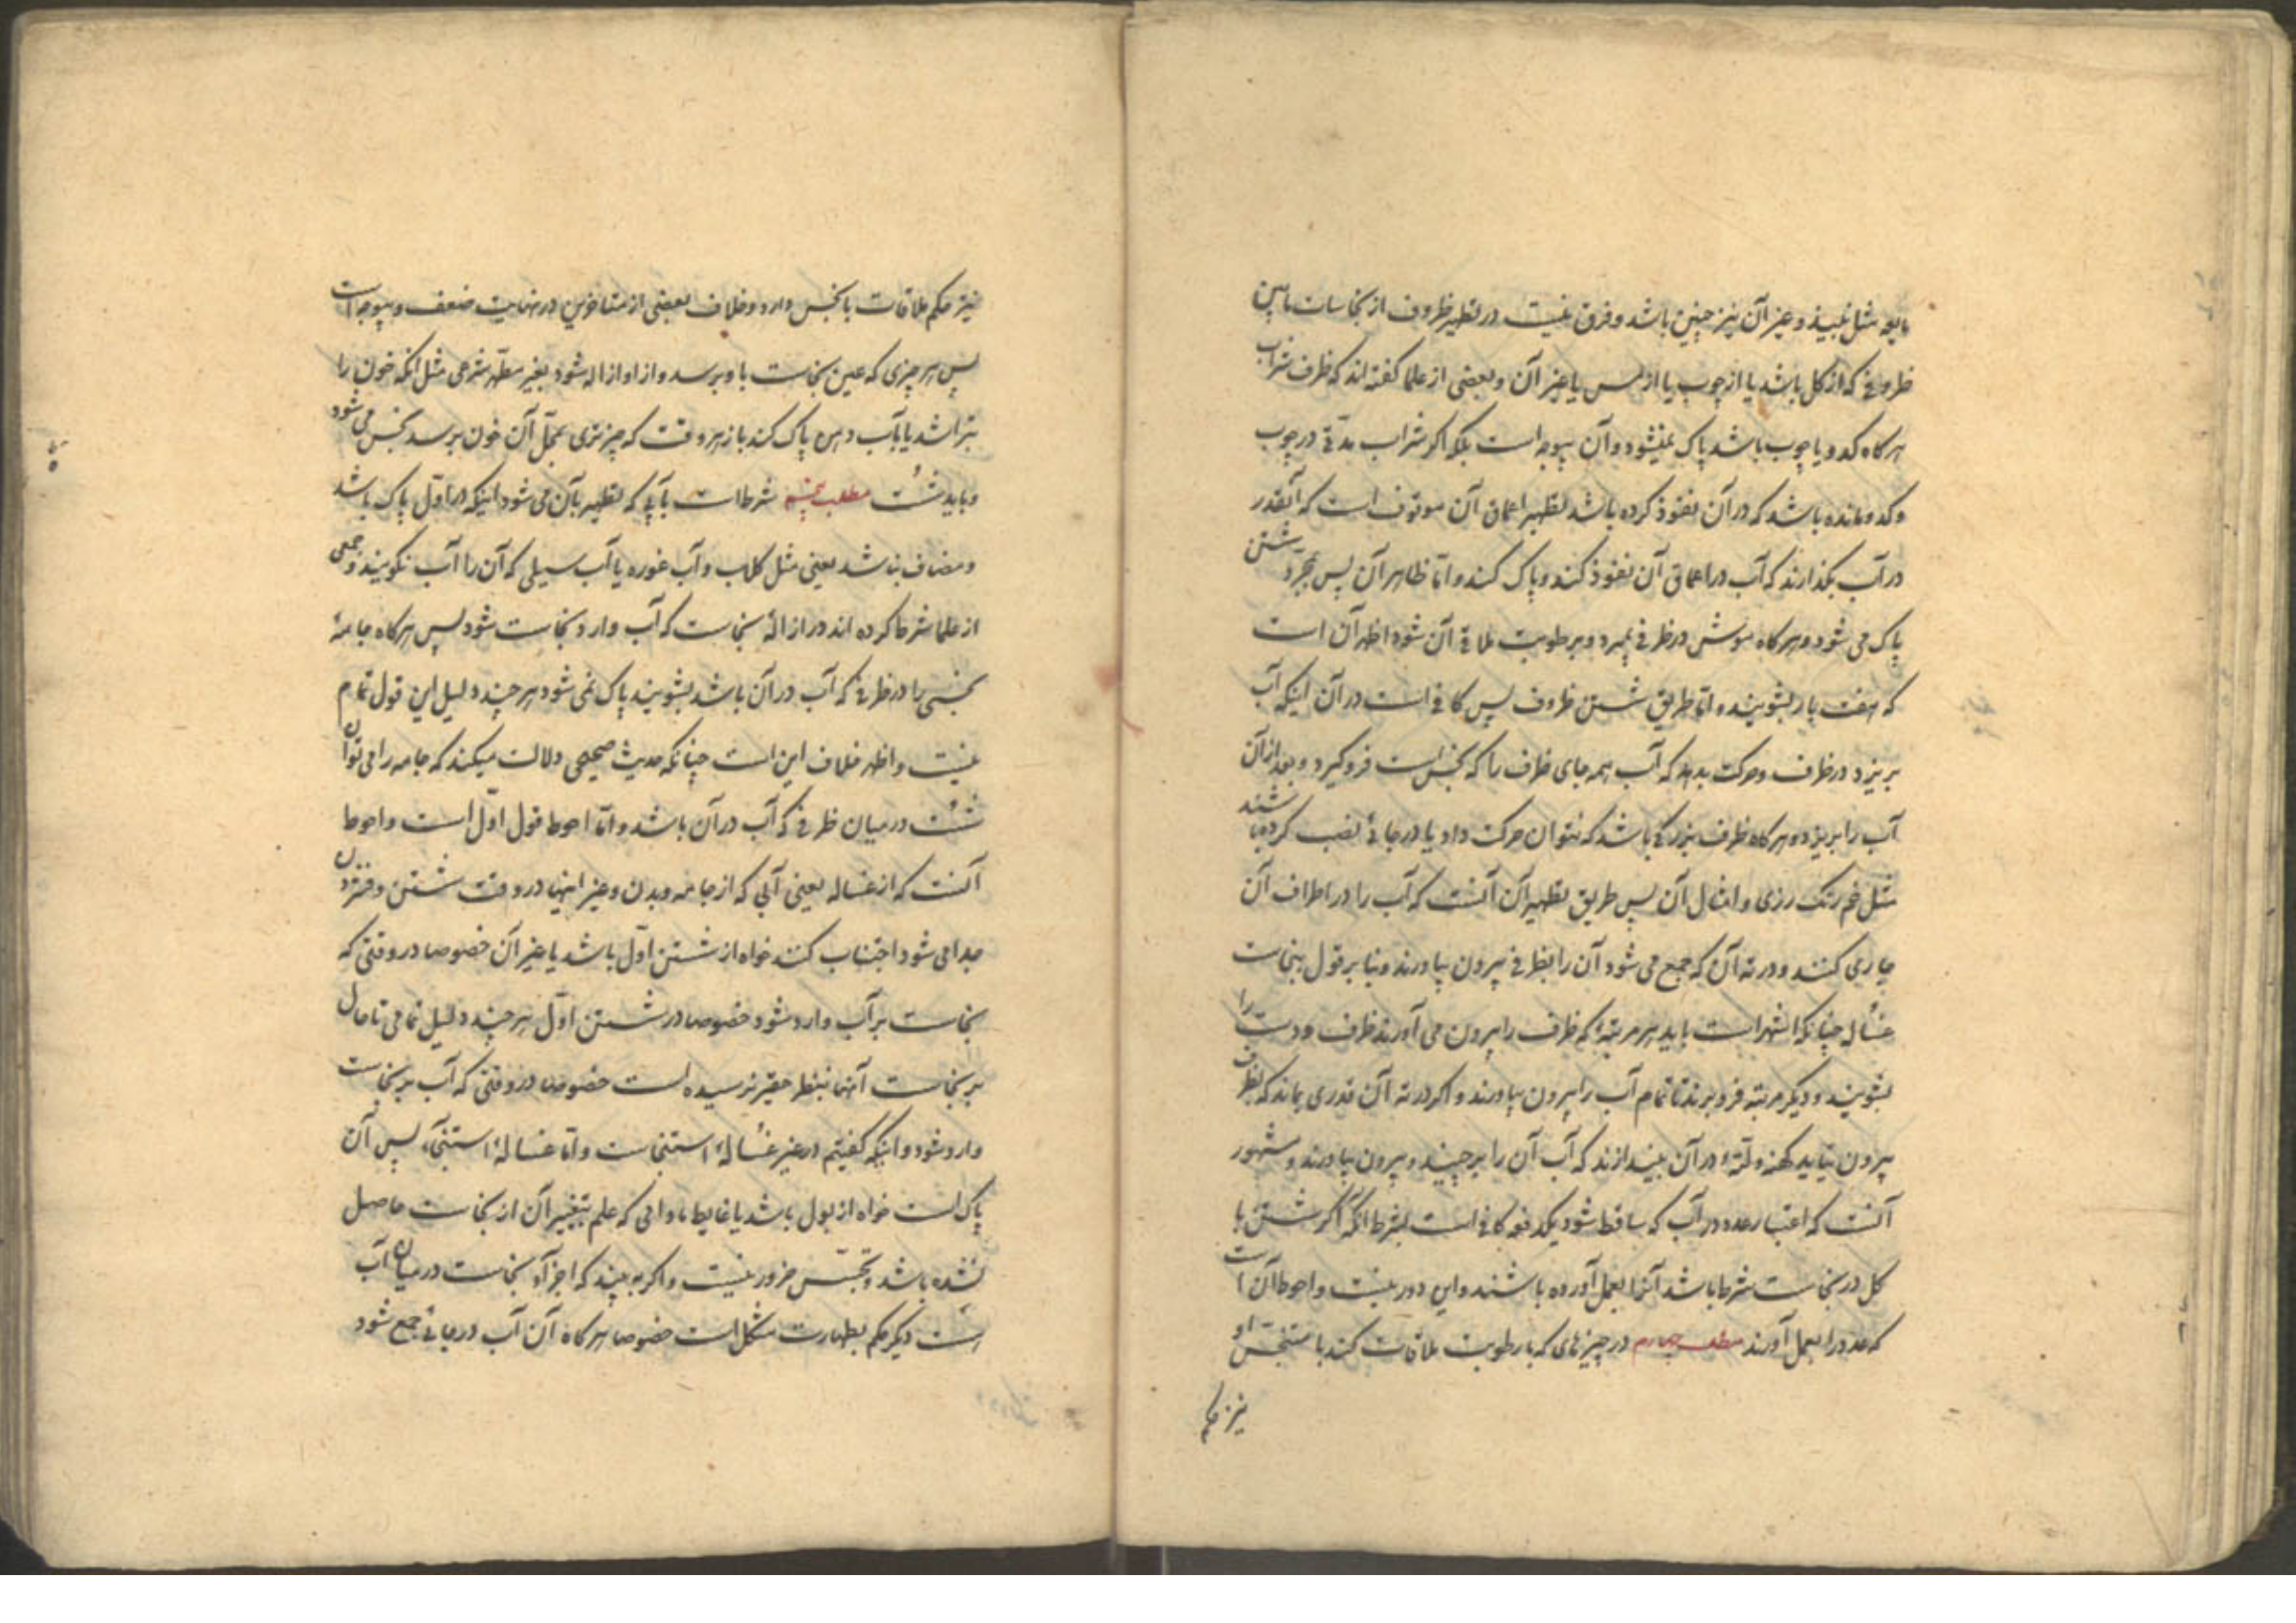 مایعه مثل نبیذ و غیر آن نیز چنین باشد و فرق نیست در تطهیر ظروف از نجاسات مابین
ظروفی که از کل باشد یا از چوب یا از مس یا غیر آن و بعضی از علما کفته اند که ظرف شراب
هرکاه کدو یا چوب باشد پاک نمیشود و آن بیوجه است بلکه اکر شراب مدتی در چوب
و کدو مانده باشد که در آن نفوذ کرده باشد تطهیر اعماق آن موقوف است که آنقدر
در آب بکذارند که آب در اعماق آن نفوذ کند و پاک کند و اما ظاهر آن پس بمجرد شستن
پاک می شود و هرکاه موش در ظرفی بمیرد و برطوبت ملاقی آن شود اظهر آن است
که هفت بار بشویند و اما طریق شستن ظروف پس کافی است در آن اینکه آب
بریزد در ظرف و حرکت بدهد که آب همه جای ظرف را که نجس است فروکیرد و بعد از آن
آب را بریزد و هرکاه ظرف بزرکی باشد که نتوان حرکت داد یا در جائی نصب کرده باشند
مثل خم رنک رزی و امثال آن پس طریق تطهیر آن آنست که آب را در اطراف آن
جاری کنند و در ته آن که جمع می شود آن را بظرفی بیرون بیاورند و بنا بر قول بنجاست
غساله چنانکه اشهر است باید هر مرتبهٔ که ظرف را بیرون می آورند ظرف و دست را
بشویند و دیکر مرتبه فرو برند تا تمام آب را بیرون بیاورند و اکر در ته آن قدری بماند که بظرف
بیرون نیاید کهنه و لتهٔ در آن بیندازند که آب آن را برچیند و بیرون بیاورند و مشهور
آنست که اعتبار عدد در آب که ساقط شود یکدفعه کافی است بشرط انکه اکر شستن با
کل در نجاست شرط باشد آنرا بعمل آورده باشند و این دور نیست و احوط آن است
که عدد را بعمل آورند مطلب چهارم در چیزهای که با رطوبت ملاقات کند با متنجس او
نیز حکم
نیز حکم ملاقات با نجس دارد و خلاف بعضی از متاخرین در نهایت ضعف و بیوجه است
پس هر چیزی که عین نجاست باو برسد و از او ازاله شود بغیر مطهر شرعی مثل انکه خون را
بتراشد یا بآب دهن پاک کند باز هر وقت که چیز تری بمحل آن خون برسد نجس می شود
و باید شست مطلب پنجم شرط است بآبی که تطهیر بآن می شود اینکه در اول پاک باشد
و مضاف نباشد یعنی مثل کلاب و آب غوره یا آب سیلی که آن را آب نکویند و جمعی
از علما شرط کرده اند در ازالهٔ نجاست که آب وارد نجاست شود پس هرکاه جامهٔ
نجسی را در ظرفی که آب در آن باشد بشویند پاک نمی شود هر چند دلیل این قول تمام
نیست و اظهر خلاف این است چنانکه حدیث صحیحی دلالت میکند که جامه را می توان
شست در میان ظرفی که آب در آن باشد و اما احوط قول اول است و احوط
آنست که از غساله یعنی آبی که از جامه و بدن و غیر اینها در وقت شستن و فشردن
جدا می شود اجتناب کنند خواه از شستن اول باشد یا غیر آن خصوصا در وقتی که
نجاست بر آب وارد شود خصوصا در شستن اول هر چند دلیل تمامی تا حال
بر نجاست آنها بنظر حقیر نرسیده است خصوصا در وقتی که آب بر نجاست
وارد شود و اینکه کفتیم در غیر غسالهٔ استنجاست و اما غسالهٔ استنجآء پس آن
پاک است خواه از بول باشد یا غایط مادامی که علم بتغییر آن از نجاست حاصل
نشده باشد و تجسس ضرور نیست و اکر به بیند که اجزآء نجاست در میان آب
است دیکر حکم بطهارت مشکل است خصوصا هرکاه آن آب در جائی جمع شود